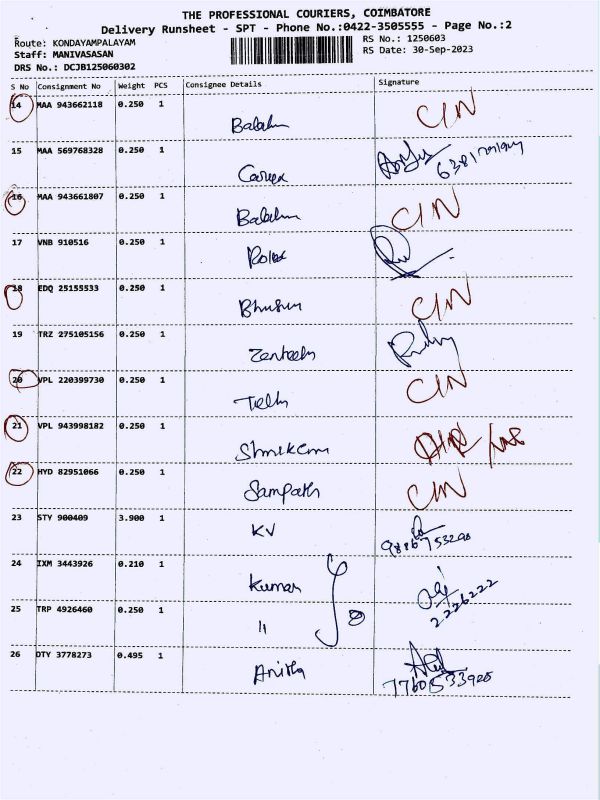 THE PROFESSIONAL COURIERS, COIMBATORE
Delivery Runsheet - SPT - Phone No.:0422-3505555 - Page No.:2
Route: KONDAYAMPALAYAM RS No.: 1250603
Staff: MANIVASASAN RS Date: 30-Sep-2023
DRS No.: DCJB125060302
S No Consignment No Weight PCS Consignee Details Signature
14 MAA 943662118 0.250 1 CIN
15 MAA 569768328 0.250 1
16 MAA 943661807 0.250 1 CIN
17 VNB 910516 0.250 1
Rolex
18 EDQ 25155533 0.250 1 CIN
19 TRZ 275105156 0.250 1
20 VPL 220399730 0.250 1 CIN
21 VPL 943998182 0.250 1
22 HYD 82951066 0.250 1 CIN
Sampath
23 STY 900409 3.900 1
KV
24 IXM 3443926 0.210 1
Kumar
25 TRP 4926460 0.250 1 2226222
11
26 DTY 3778273 0.495 1
Anitha